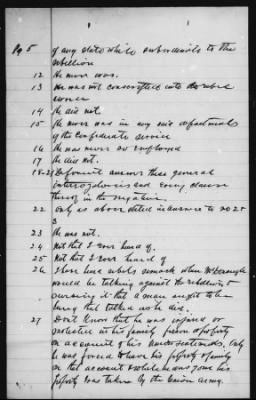 Pg 5 of any state while subordinate to the
rebellion
12 He never was.
13 He was not conscripted into the rebel
service
14 He did not
15 He never was in any said departments
of the Confederate service
16 He was never so employed
17 He did not.
18-21 I answer these general
interrogatories and every clause
thereof in the negative.
22 Only as above stated in answer to no 2
3
23 He was not.
24 Not that I ever heard of.
25 Not that I ever heard of
26 I have heard rebels remark when
would be talking against the rebellion &
cursing it that a man ought to be
hung that talked as he did.
27 Don't Know that he was injured or
molested in his family person or property
on account of his Union sentiments, Only
he was forced to have his property & family
on that account & while he was gone his
property was taken by the Union Army.